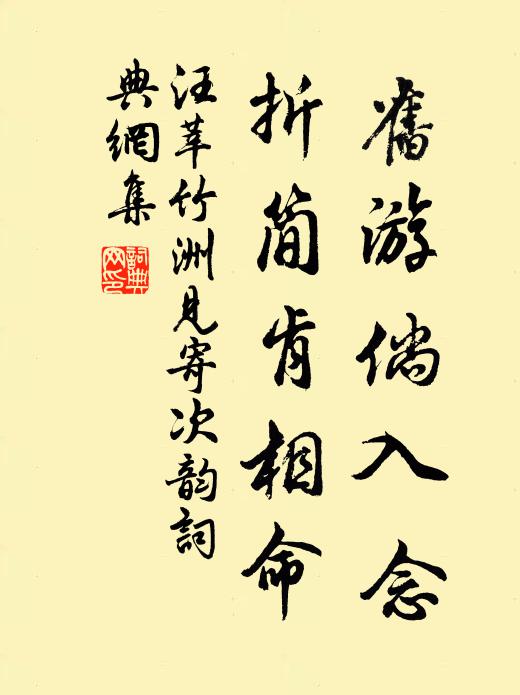 舊游倘入念
折简肯相命
汪莘竹洲見寄次韵詞
典網集
詞典網印